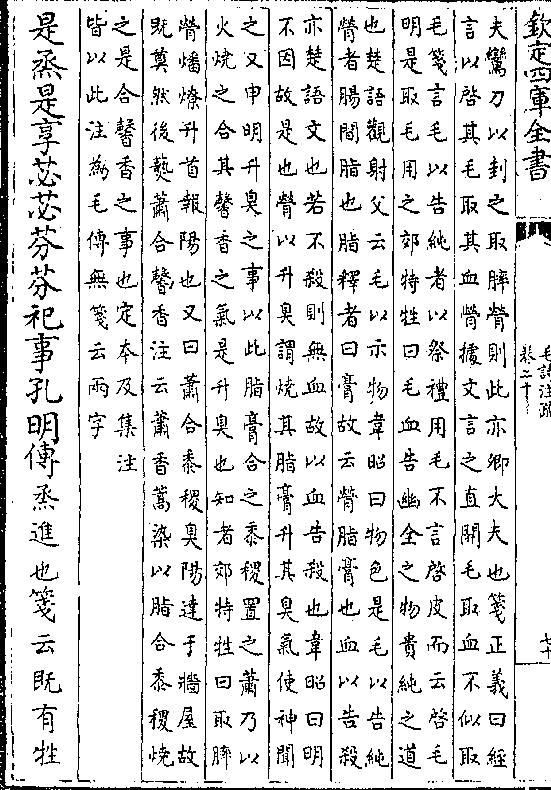 欽定四庫全書
毛詩注疏
卷二十
七十
夫鸞刀以刲之取膟膋則此亦卿大夫也箋正義曰經
言以啓其毛取其血膋據文言之直開毛取血不似取
毛箋言毛以告純者以祭禮用毛不言啓皮而云啓毛
明是取毛用之郊特牲曰毛血告幽全之物貴純之道
也楚語觀射父云毛以示物韋昭曰物色是毛以告純
膋者腸間脂也脂釋者曰膏故云膋脂膏也血以告殺
亦楚語文也若不殺則無血故以血告殺也韋昭曰明
不因故是也膋以升臭謂燒其脂膏升其臭氣使神聞
之又申明升臭之事以此脂膏合之黍稷置之蕭乃以
火燒之合其馨香之氣是升臭也知者郊特牲曰取膟
膋燔燎升首報陽也又曰蕭合黍稷臭陽達于牆屋故
既奠然後爇蕭合馨香注云蕭香蒿染以脂合黍稷燒
之是合馨香之事也定本及集注
皆以此注為毛傳無箋云兩字
是烝是享苾苾芬芬祀事孔明傳烝進也箋云既有牲